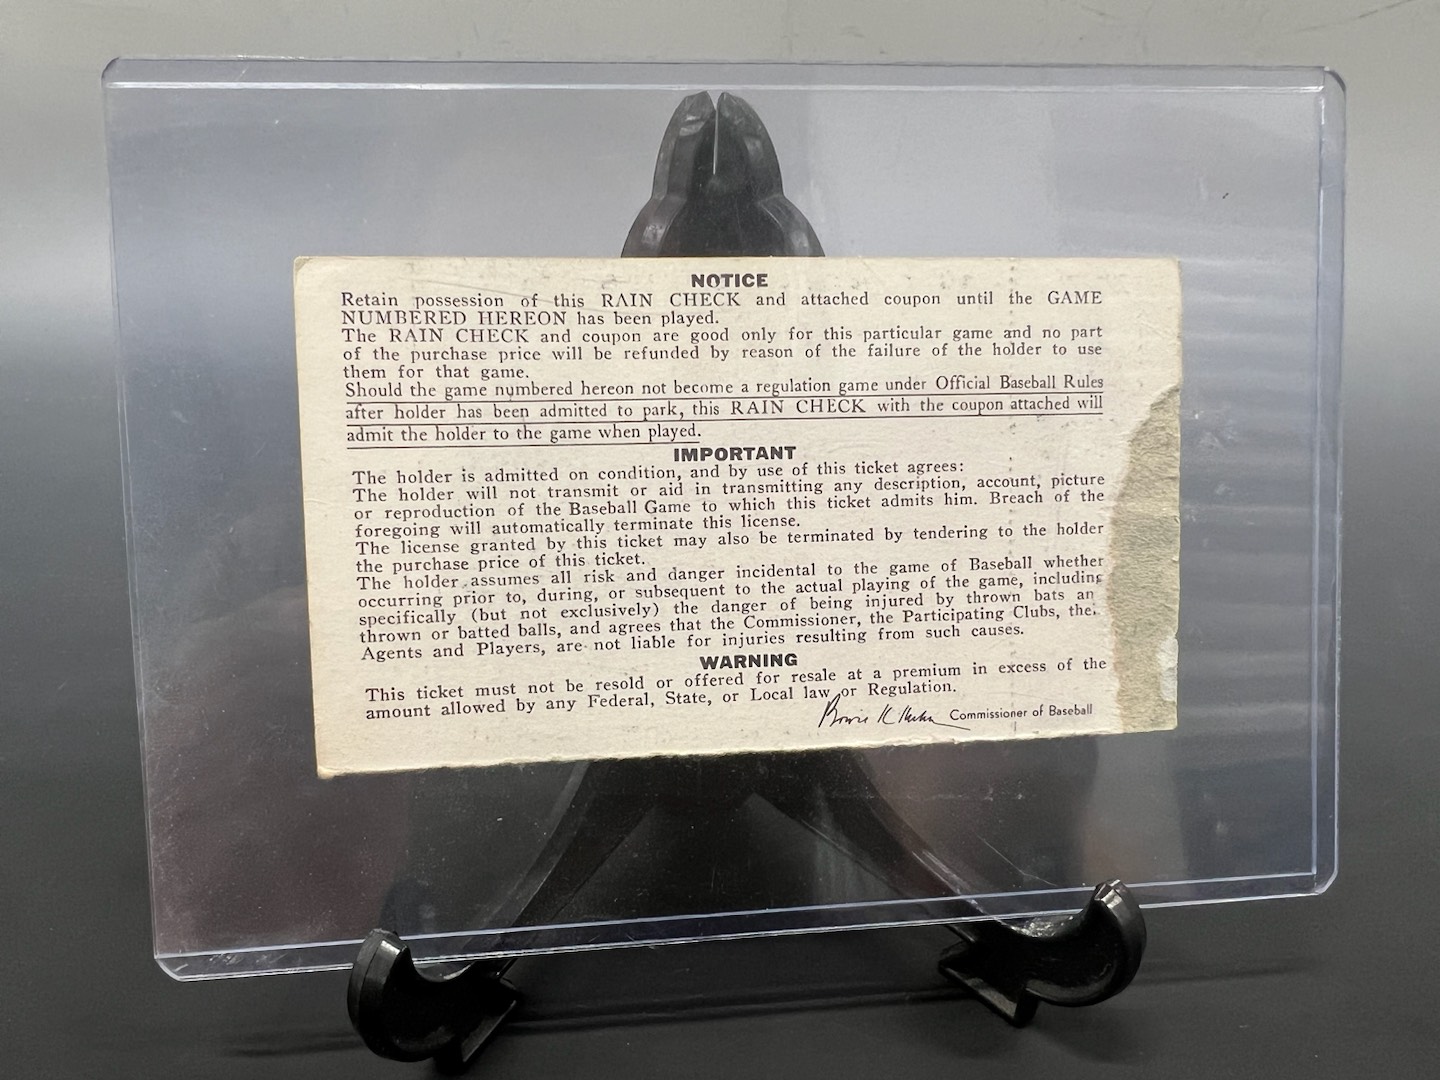 NOTICE
Retain possession of this RAIN CHECK and attached coupon until the GAME
NUMBERED HEREON has been played.
The RAIN CHECK and coupon are good only for this particular game and no part
of the purchase price will be refunded by reason of the failure of the holder to use
them for that game.
Should the game numbered hereon not become a regulation game under Official Baseball Rules
after holder has been admitted to park, this RAIN CHECK with the coupon attached will
admit the holder to the game when played.
IMPORTANT
The holder is admitted on condition, and by use of this ticket agrees:
The holder will not transmit or aid in transmitting any description, account, picture
or reproduction of the Baseball Game to which this ticket admits him. Breach of the
foregoing will automatically terminate this license.
The license granted by this ticket may also be terminated by tendering to the holder
the purchase price of this ticket.
The holder assumes all risk and danger incidental to the game of Baseball whether
occurring prior to, during, or subsequent to the actual playing of the game, including
specifically (but not exclusively) the danger of being injured by thrown bats an
thrown or batted balls, and agrees that the Commissioner, the Participating Clubs, the
Agents and Players, are not liable for injuries resulting from such causes.
WARNING
This ticket must not be resold or offered for resale at a premium in excess of the
amount allowed by any Federal, State, or Local law or Regulation.
Bowie K Kuhn Commissioner of Baseball